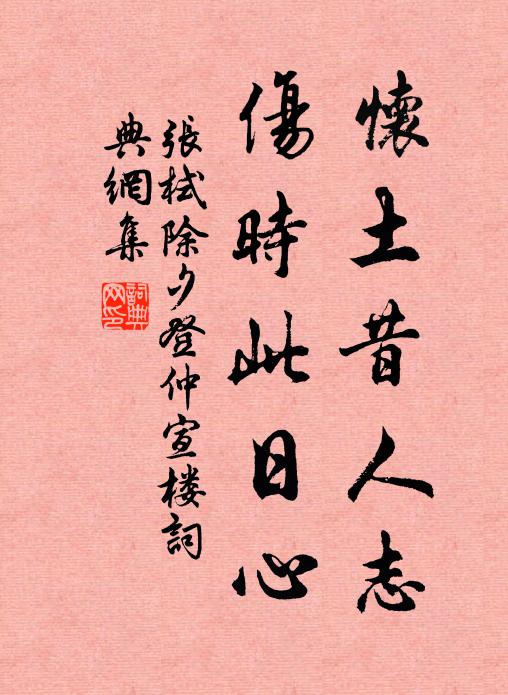 懷土昔人志
傷時此日心
張栻除夕登仲宣楼詞
典網集
詞典網印